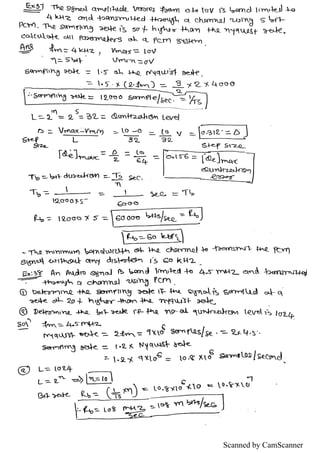 Ex:37 The signal amplitude varies from 0 to 10V is band limited to
4 kHz and transmitted through a channel using 5 bit
PCM. The sampling rate is 50% higher than the nyquist rate,
calculate all parameters of a PCM system.
Ans fm = 4 kHz, Vmax = 10V
n = 5 bit Vmin = 0V
Sampling rate = 1.5 of the nyquist rate.
= 1.5 × (2fm) = 3/2 × 2 × 4000
∴ Sampling rate = 12000 sample/sec. = 1/Ts
L = 2^n = 2^5 = 32 = Quantization Level
Δ = Vmax - Vmin / L = 10-0 / 32 = 10/32 V = 0.312 = Δ
Step Size Step size
[Qe]max = Δ/2 = 10/64 = 0.156 = [Qe]max
Quantization error
Tb = bit duration = Ts/n sec.
Tb = 1/12000×5 = 1/6000 sec = Tb
Rb = 12000 × 5 = 60000 bits/sec = Rb
Rb = 60 kbps
- The minimum bandwidth of the channel to transmit the PCM
signal without any distortion is 60 kHz.
Ex:38 An Audio signal is band limited to 4.5 MHz and transmitted
through a channel using PCM.
① Determine the sampling rate if the signal is sampled at a
rate of 20% higher than the nyquist rate.
② Determine the bit rate if the no. of quantization level is 1024
Sol fm = 4.5 MHz
nyquist rate = 2fm = 9×10^6 samples/se. = 2×4.5.
Sampling rate = 1.2 × Nyquist rate
= 1.2 × 9×10^6 = 10.8×10^6 samples/second.
② L = 1024
L = 2^n ⇒ n = 10
Bit rate Rb = (1/Ts n) = 10.8×10^6 × 10 = 10.8×10^7
∴ Rb = 108 MHz/sec = 108 m bits/sec
Scanned by CamScanner